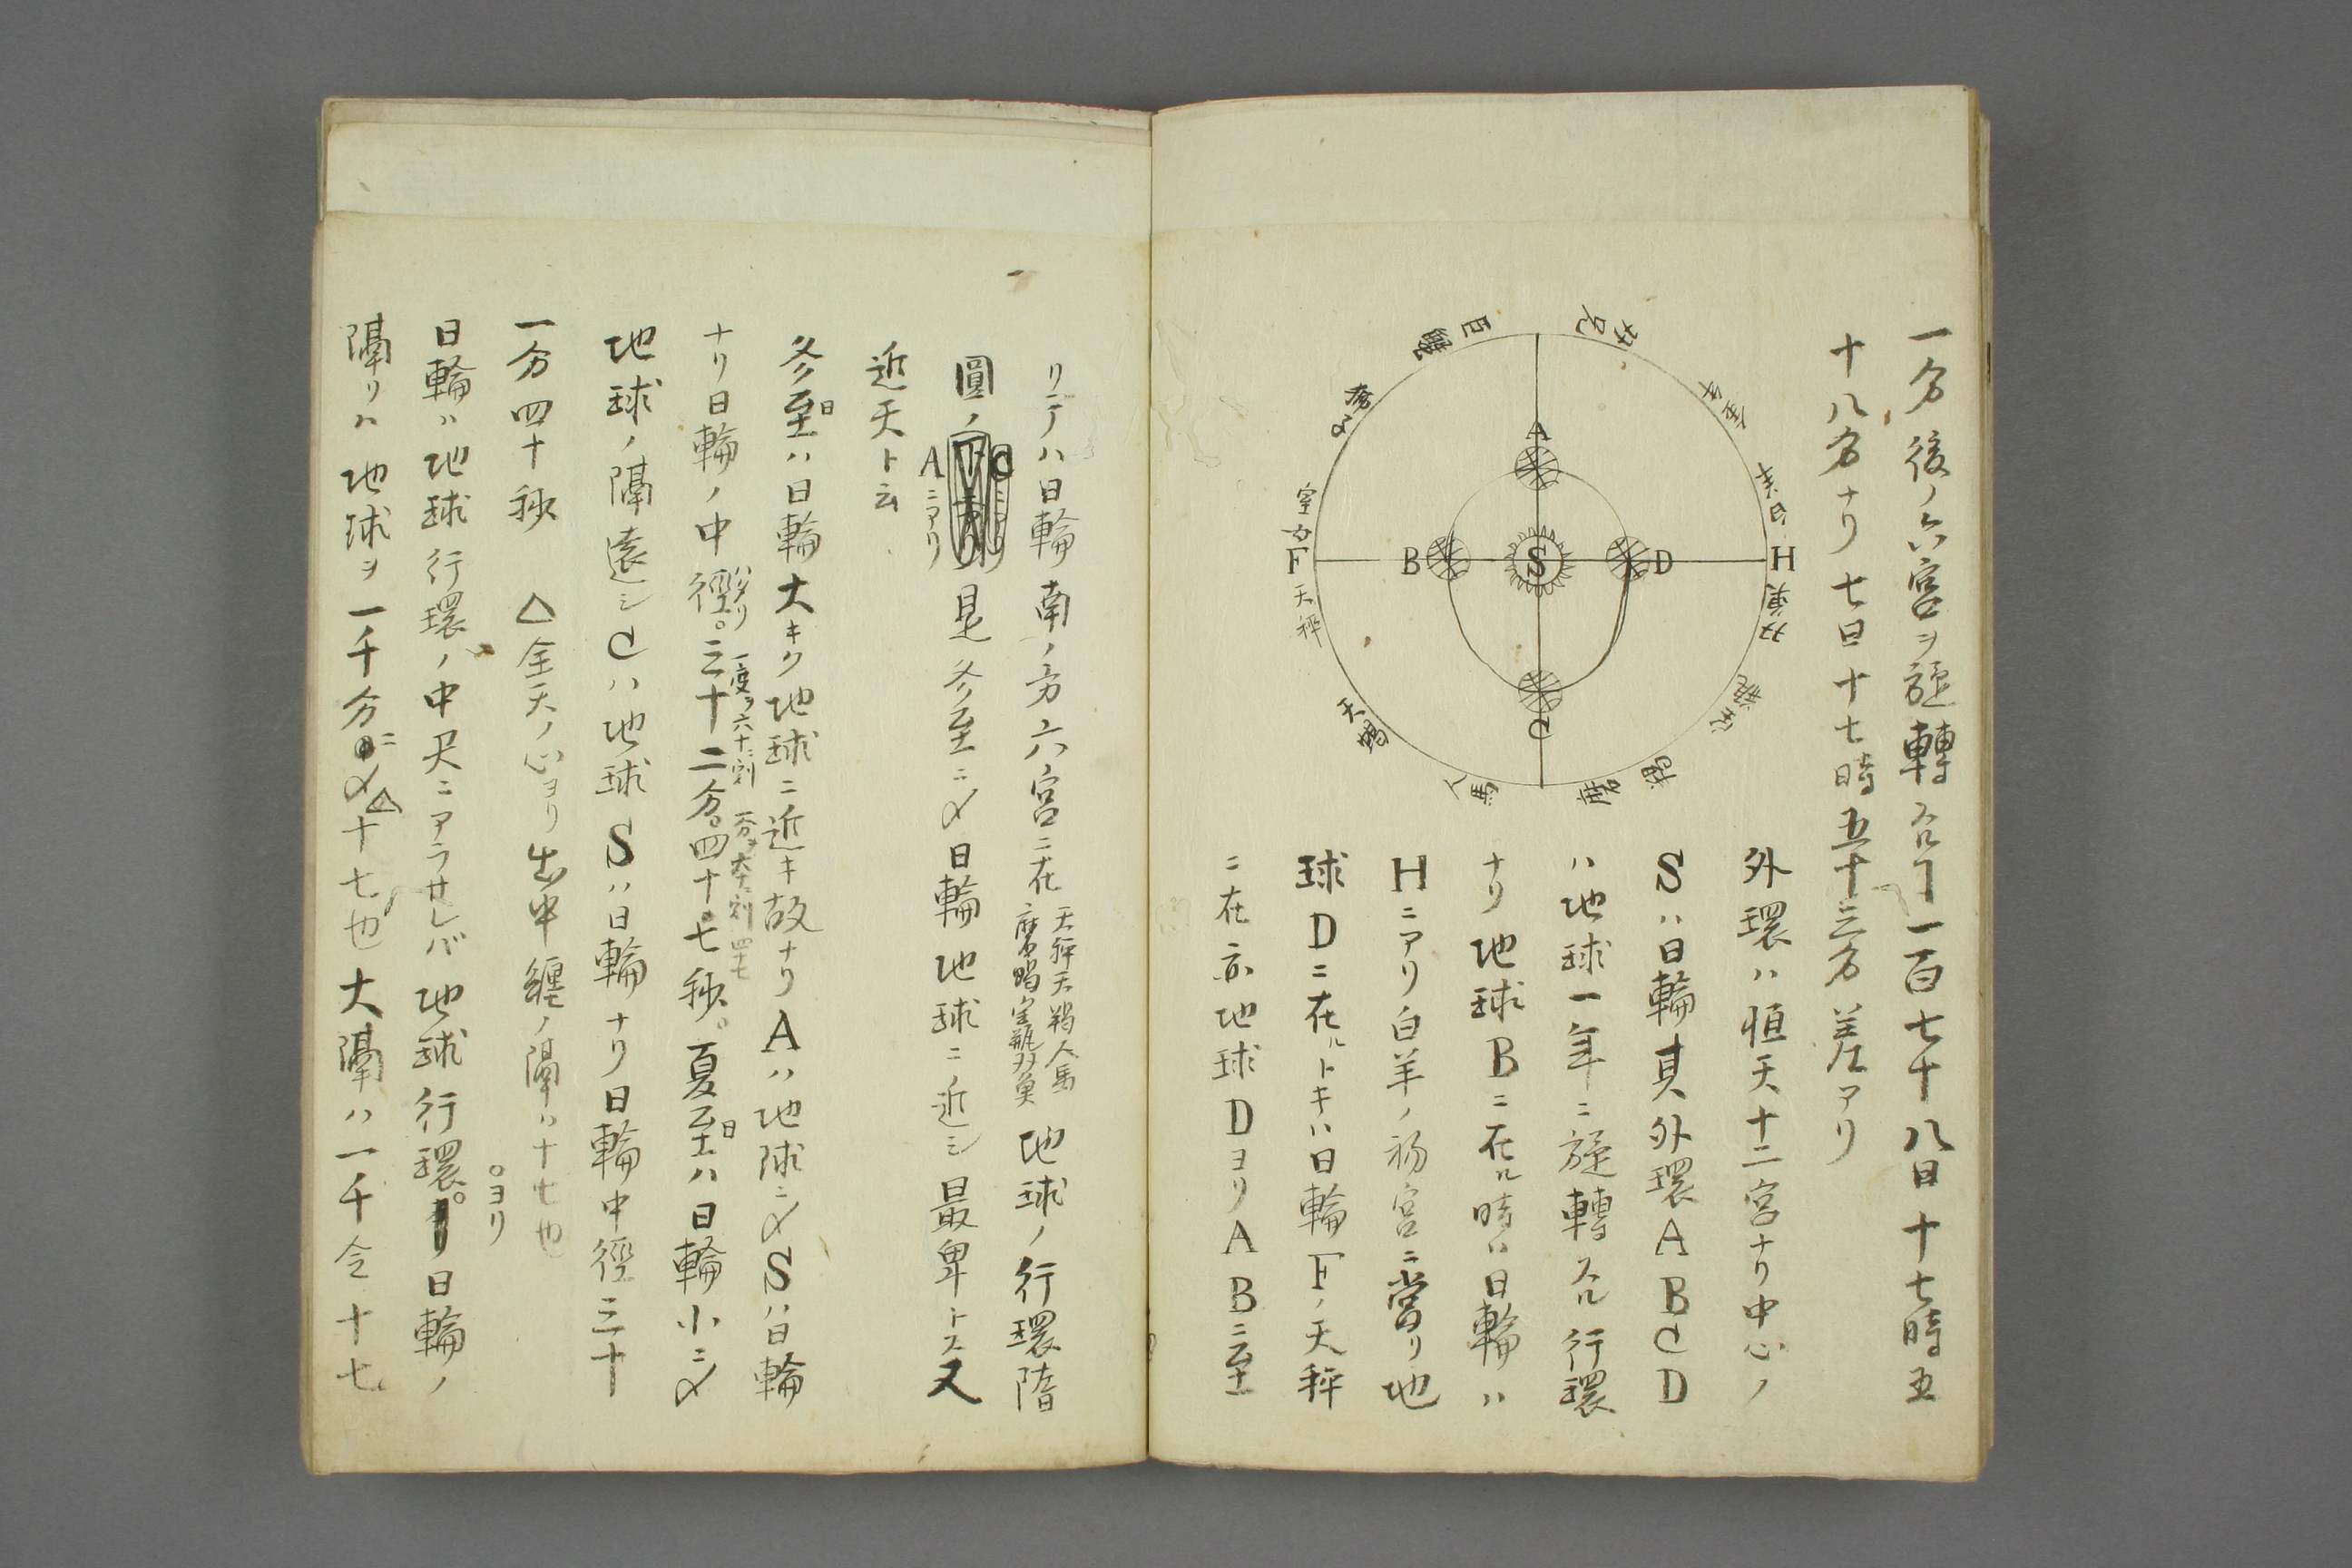 一分後ノ六宮ヲ旋轉スルヿ一百七十八日十七時五
十八分ナリ七日十七時五十三分差アリ
巨蟹
獅子
室女
F
天秤
天蝎
人馬
磨羯
宝瓶
双魚
H
白羊
金牛
双兄
A
B
S
D
C
外環ハ恒天十二宮ナリ中心ノ
Sハ日輪其外環ABCD
ハ地球一年ニ旋轉スル行環
ナリ地球Bニ在ル時ハ日輪ハ
Hニアリ白羊ノ初宮ニ當リ地
球Dニ在ルトキハ日輪F天秤
ニ在亦地球DヨリABニ至
リテハ日輪南ノ方六宮ニ在
天秤天蝎人馬
磨羯宝瓶双魚
地球ノ行環隋
圓ノ
Aニアリ
是冬至ニ〆日輪地球ニ近シ最卑トス又
近天ト云
冬至日ハ日輪大キク地球ニ近キ故ナリAハ地球ニ〆Sハ日輪
ナリ日輪ノ中徑ハタリ三十二分四十七秒夏至日ハ日輪小ニ〆
一度ヲ六十ニ割
一分ヲ六十ニ割
地球ノ隔遠シCハ地球Sハ日輪ナリ日輪中徑三十
一分四十秒
△全天ノ心ヨリ出中纏ノ隔ハ十七也
日輪ハ地球行環ノ中尺ニアラサレバ地球行環ヨリ日輪ノ
隔リハ地球ヲ一千分ニ〆△十七也大隔ハ一千令十七